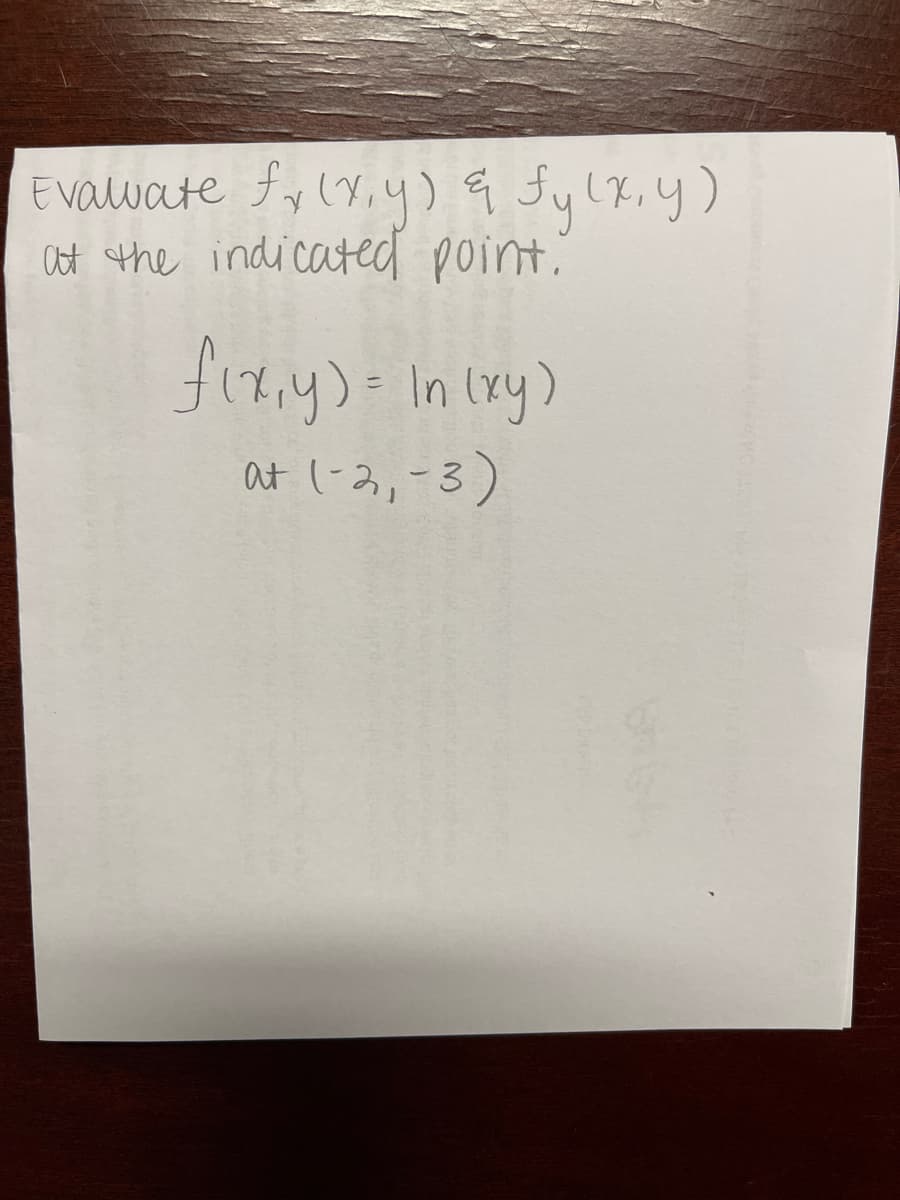 Evaluate fx(x,y) & fy(x,y)
at the indicated point.
f(x,y) = ln(xy)
at (-2,-3)